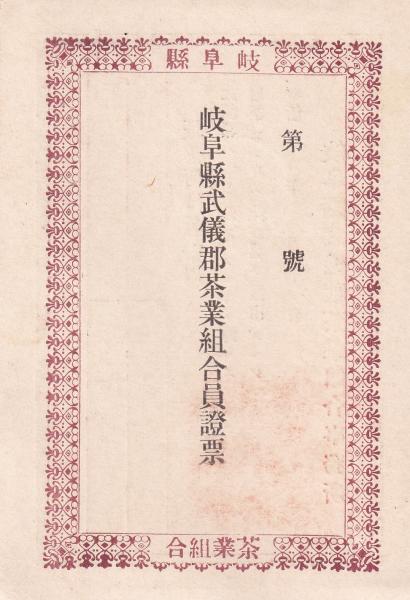 岐阜縣
第　　號
岐阜縣武儀郡茶業組合員證票
茶業組合